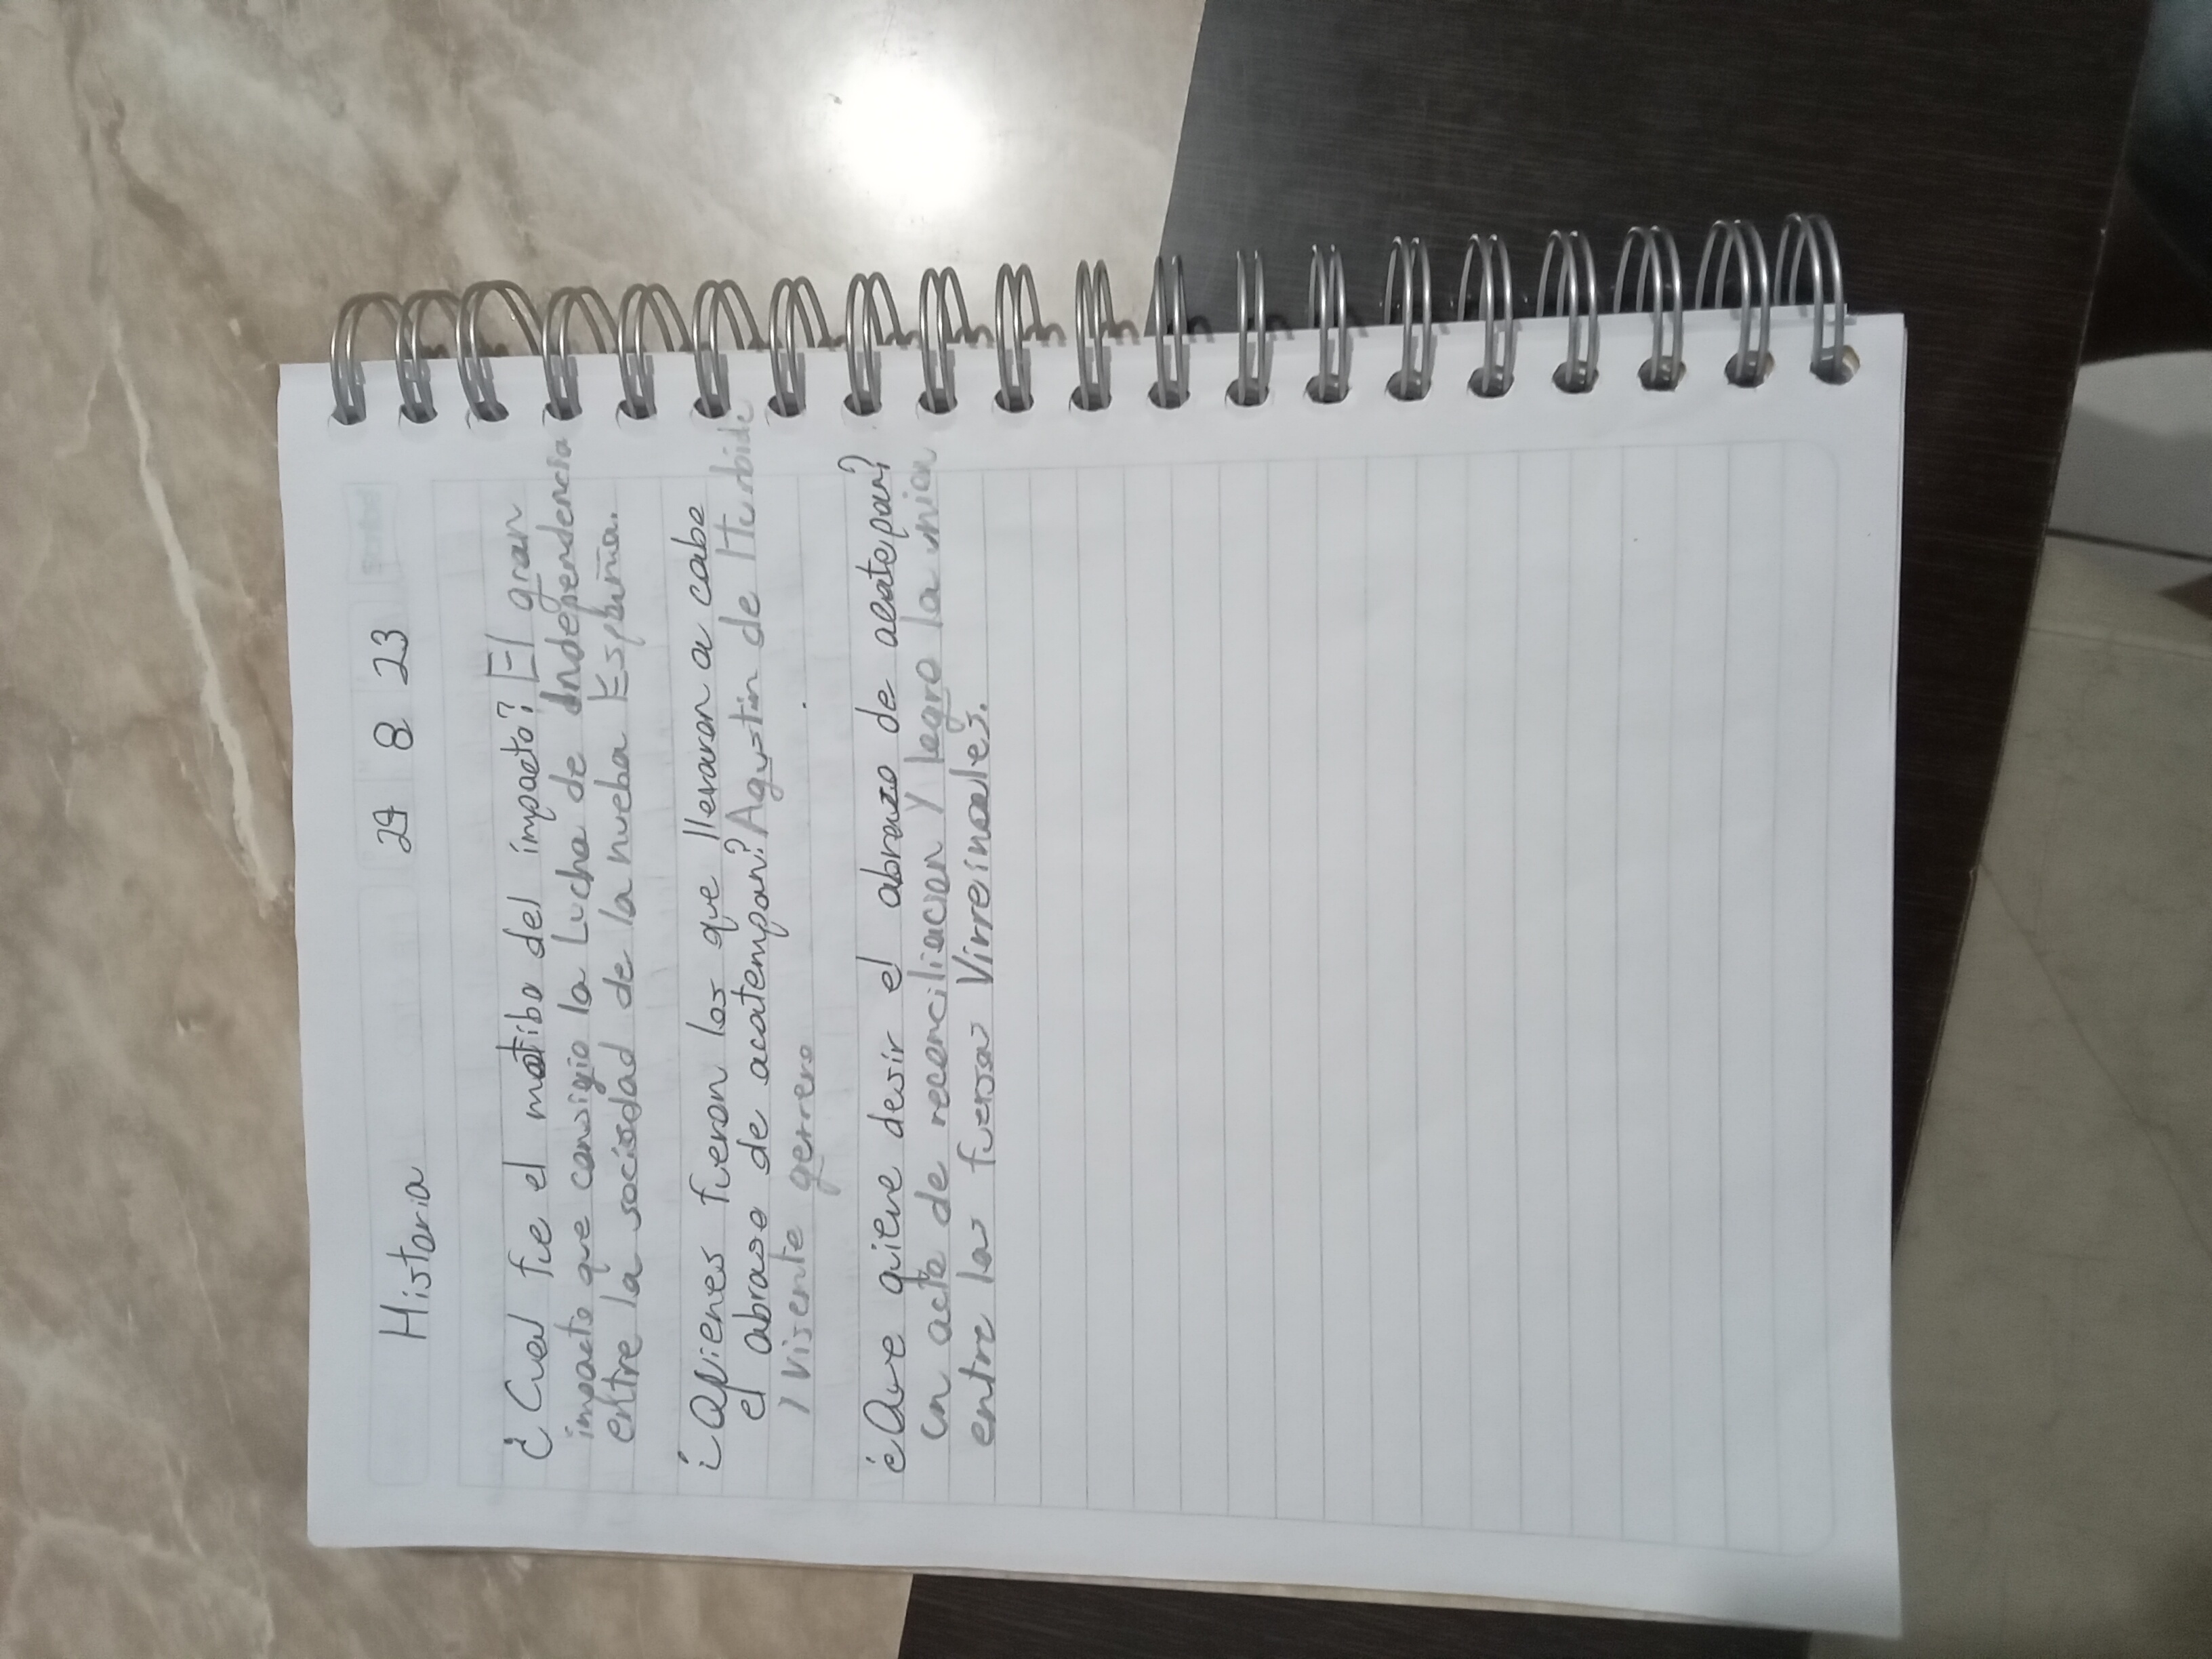 Historia 29 8 23
¿Cual fue el motibo del impacto? El gran
impacto que consigio la Lucha de Independencia
entre la sociedad de la nueba España.
¿Quienes fueron los que llevaron a cabo
el abraso de acatempan? Agustin de Iturbide
y Visente gerrero
¿Que quieve desir el abrazo de acatepan?
un acto de reconciliacion y logro la union
entre las fuersas Virreinales.